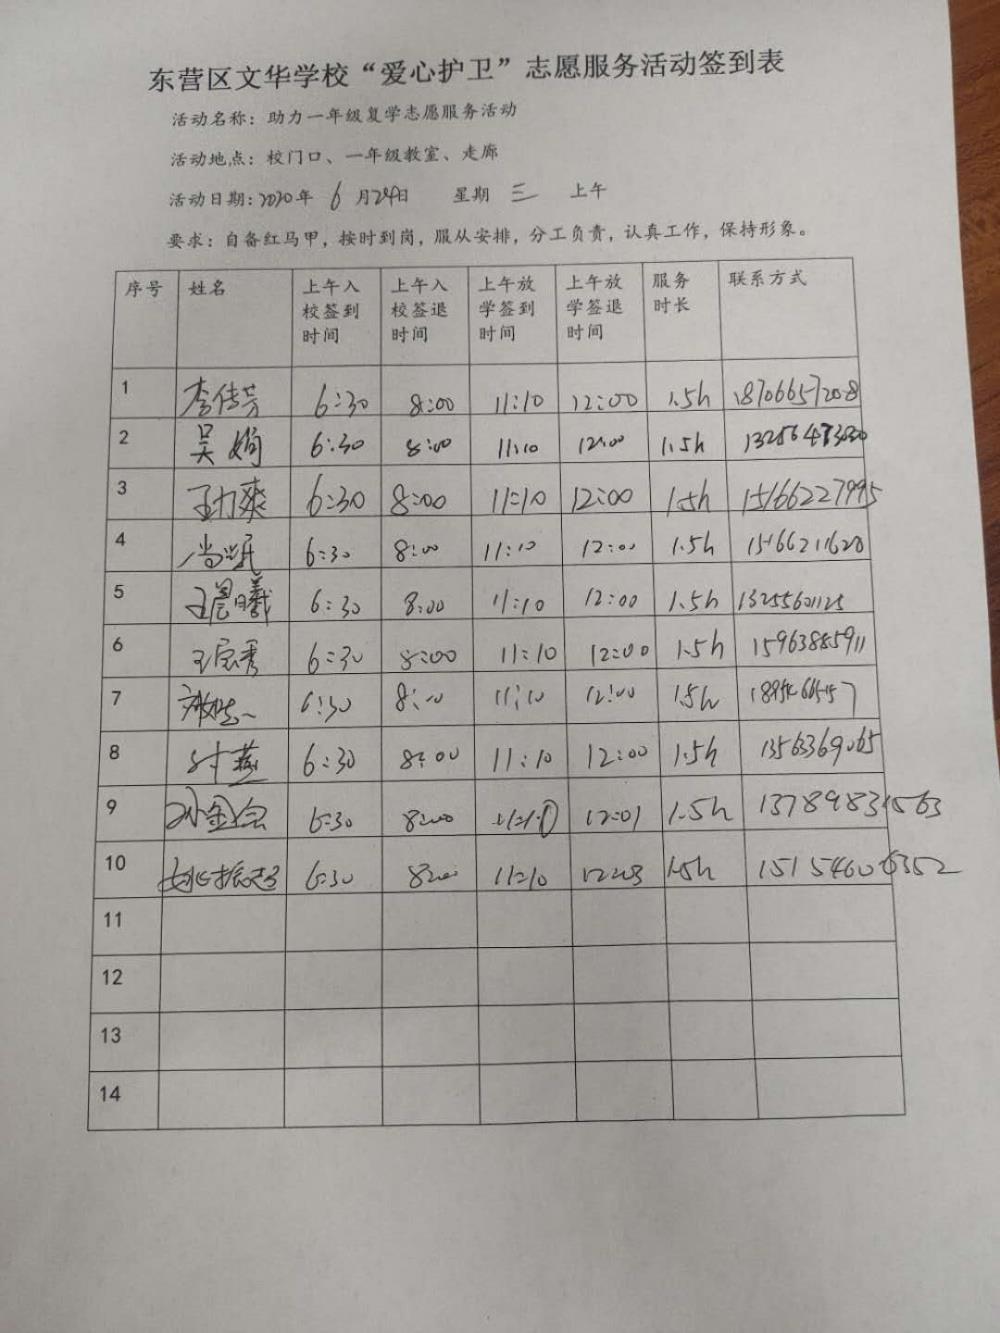 东营区文华学校“爱心护卫”志愿服务活动签到表
活动名称：助力一年级复学志愿服务活动
活动地点：校门口、一年级教室、走廊
活动日期：2020年 6 月24日 星期 三 上午
要求：自备红马甲，按时到岗，服从安排，分工负责，认真工作，保持形象。
序号 姓名 上午入校签到时间 上午入校签退时间 上午放学签到时间 上午放学签退时间 服务时长 联系方式
1 李传芳 6:30 8:00 11:10 12:00 1.5h
2 吴娟 6:30 8:00 11:10 12:00 1.5h
3 6:30 8:00 11:10 12:00 1.5h 15166227995
4 6:30 8:00 11:10 12:00 1.5h 15166211628
5 王晨曦 6:30 8:00 11:10 12:00 1.5h 13255601125
6 6:30 8:00 11:10 12:00 1.5h 15963885911
7 6:30 8:00 11:10 12:00 1.5h
8 6:30 8:00 11:10 12:00 1.5h 13563369065
9 孙金会 6:30 8:00 12:01 1.5h
10 姚振超 6:30 8:00 11:10 12:03 1.5h
11
12
13
14